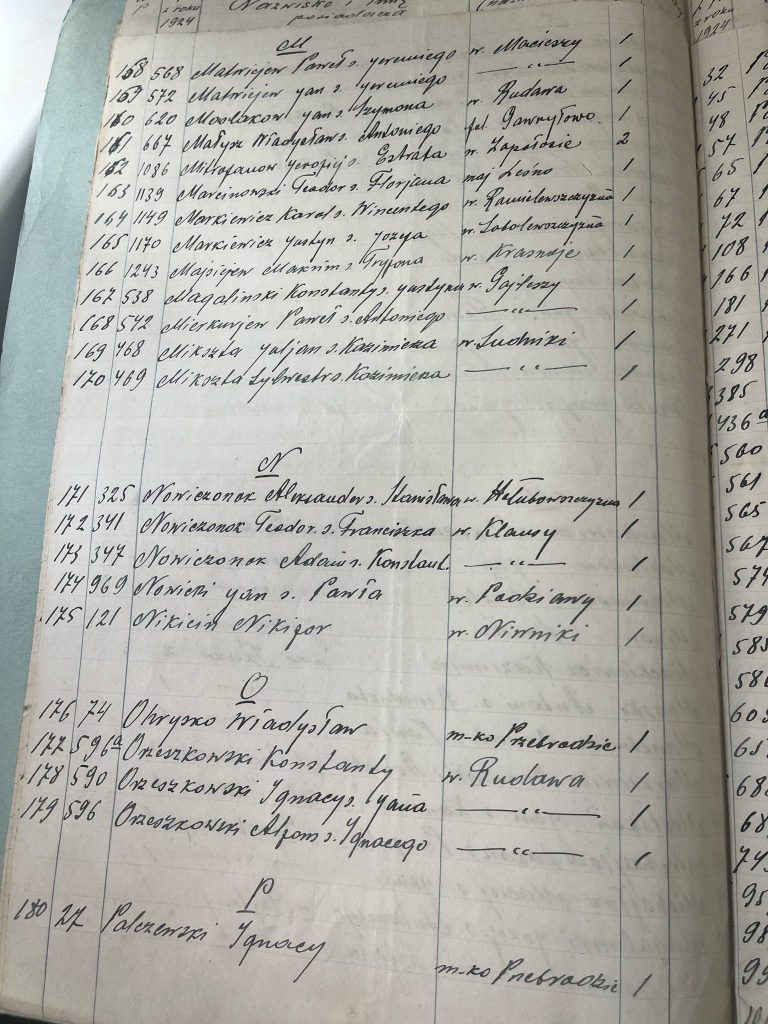 P z roku 1924 Nazwisko i imię posiadacza
z roku 1924
M
158 568 Matwiejew Paweł s. Yeremiego w. Macieszy 1
159 572 Matwiejew Yan s. Yeremiego —〃— 1
160 620 Moslakow Yan s. Szymona w. Rudawa 1
161 667 Małysz Władysław s. Antoniego fol. Gawryłowo 1
162 1086 Mitrofanow Yerofiej s. Estrata w. Zapołosie 2
163 1139 Marcinowski Teodor s. Florjana maj. Leśno 1
164 1149 Markiewicz Karol s. Wincentego w. 1
165 1170 Markiewicz Yustyn s. Yozefa w. 1
166 1243 Majsiejew Maksim s. Tryfona w. Krasnoje 1
167 538 Magalinski Konstanty s. Yustyna w. Gajleszy 1
168 542 Mierkurjew Paweł s. Antoniego —〃— 1
169 468 Mikszta Yuljan s. Kazimierza w. Ludwiki 1
170 469 Mikszta Sylwestr s. Kazimierza —〃— 1
N
171 325 Nowiczonok Aleksander s. Stanisława w. Hołubowszczyzna 1
172 341 Nowiczonok Teodor s. Franciszka w. Klausy 1
173 347 Nowiczonok Adam s. Konstant. —〃— 1
174 969 Nowicki Yan s. Pawła w. Podziawy 1
175 121 Nikicin Nikifor w. Niwniki 1
O
176 74 Ohryzko Władysław m-ko Przebrodzie 1
177 596a Orzeszkowski Konstanty w. Rudawa 1
178 590 Orzeszkowski Ignacy s. Yana —〃— 1
179 596 Orzeszkowski Alfons s. Ignacego —〃— 1
P
180 27 Palczewski Ignacy m-ko Przebrodzie 1
32
45
48
57
65
67
72
108
166
181
271
298
385
436a
560
561
565
567
574
579
585